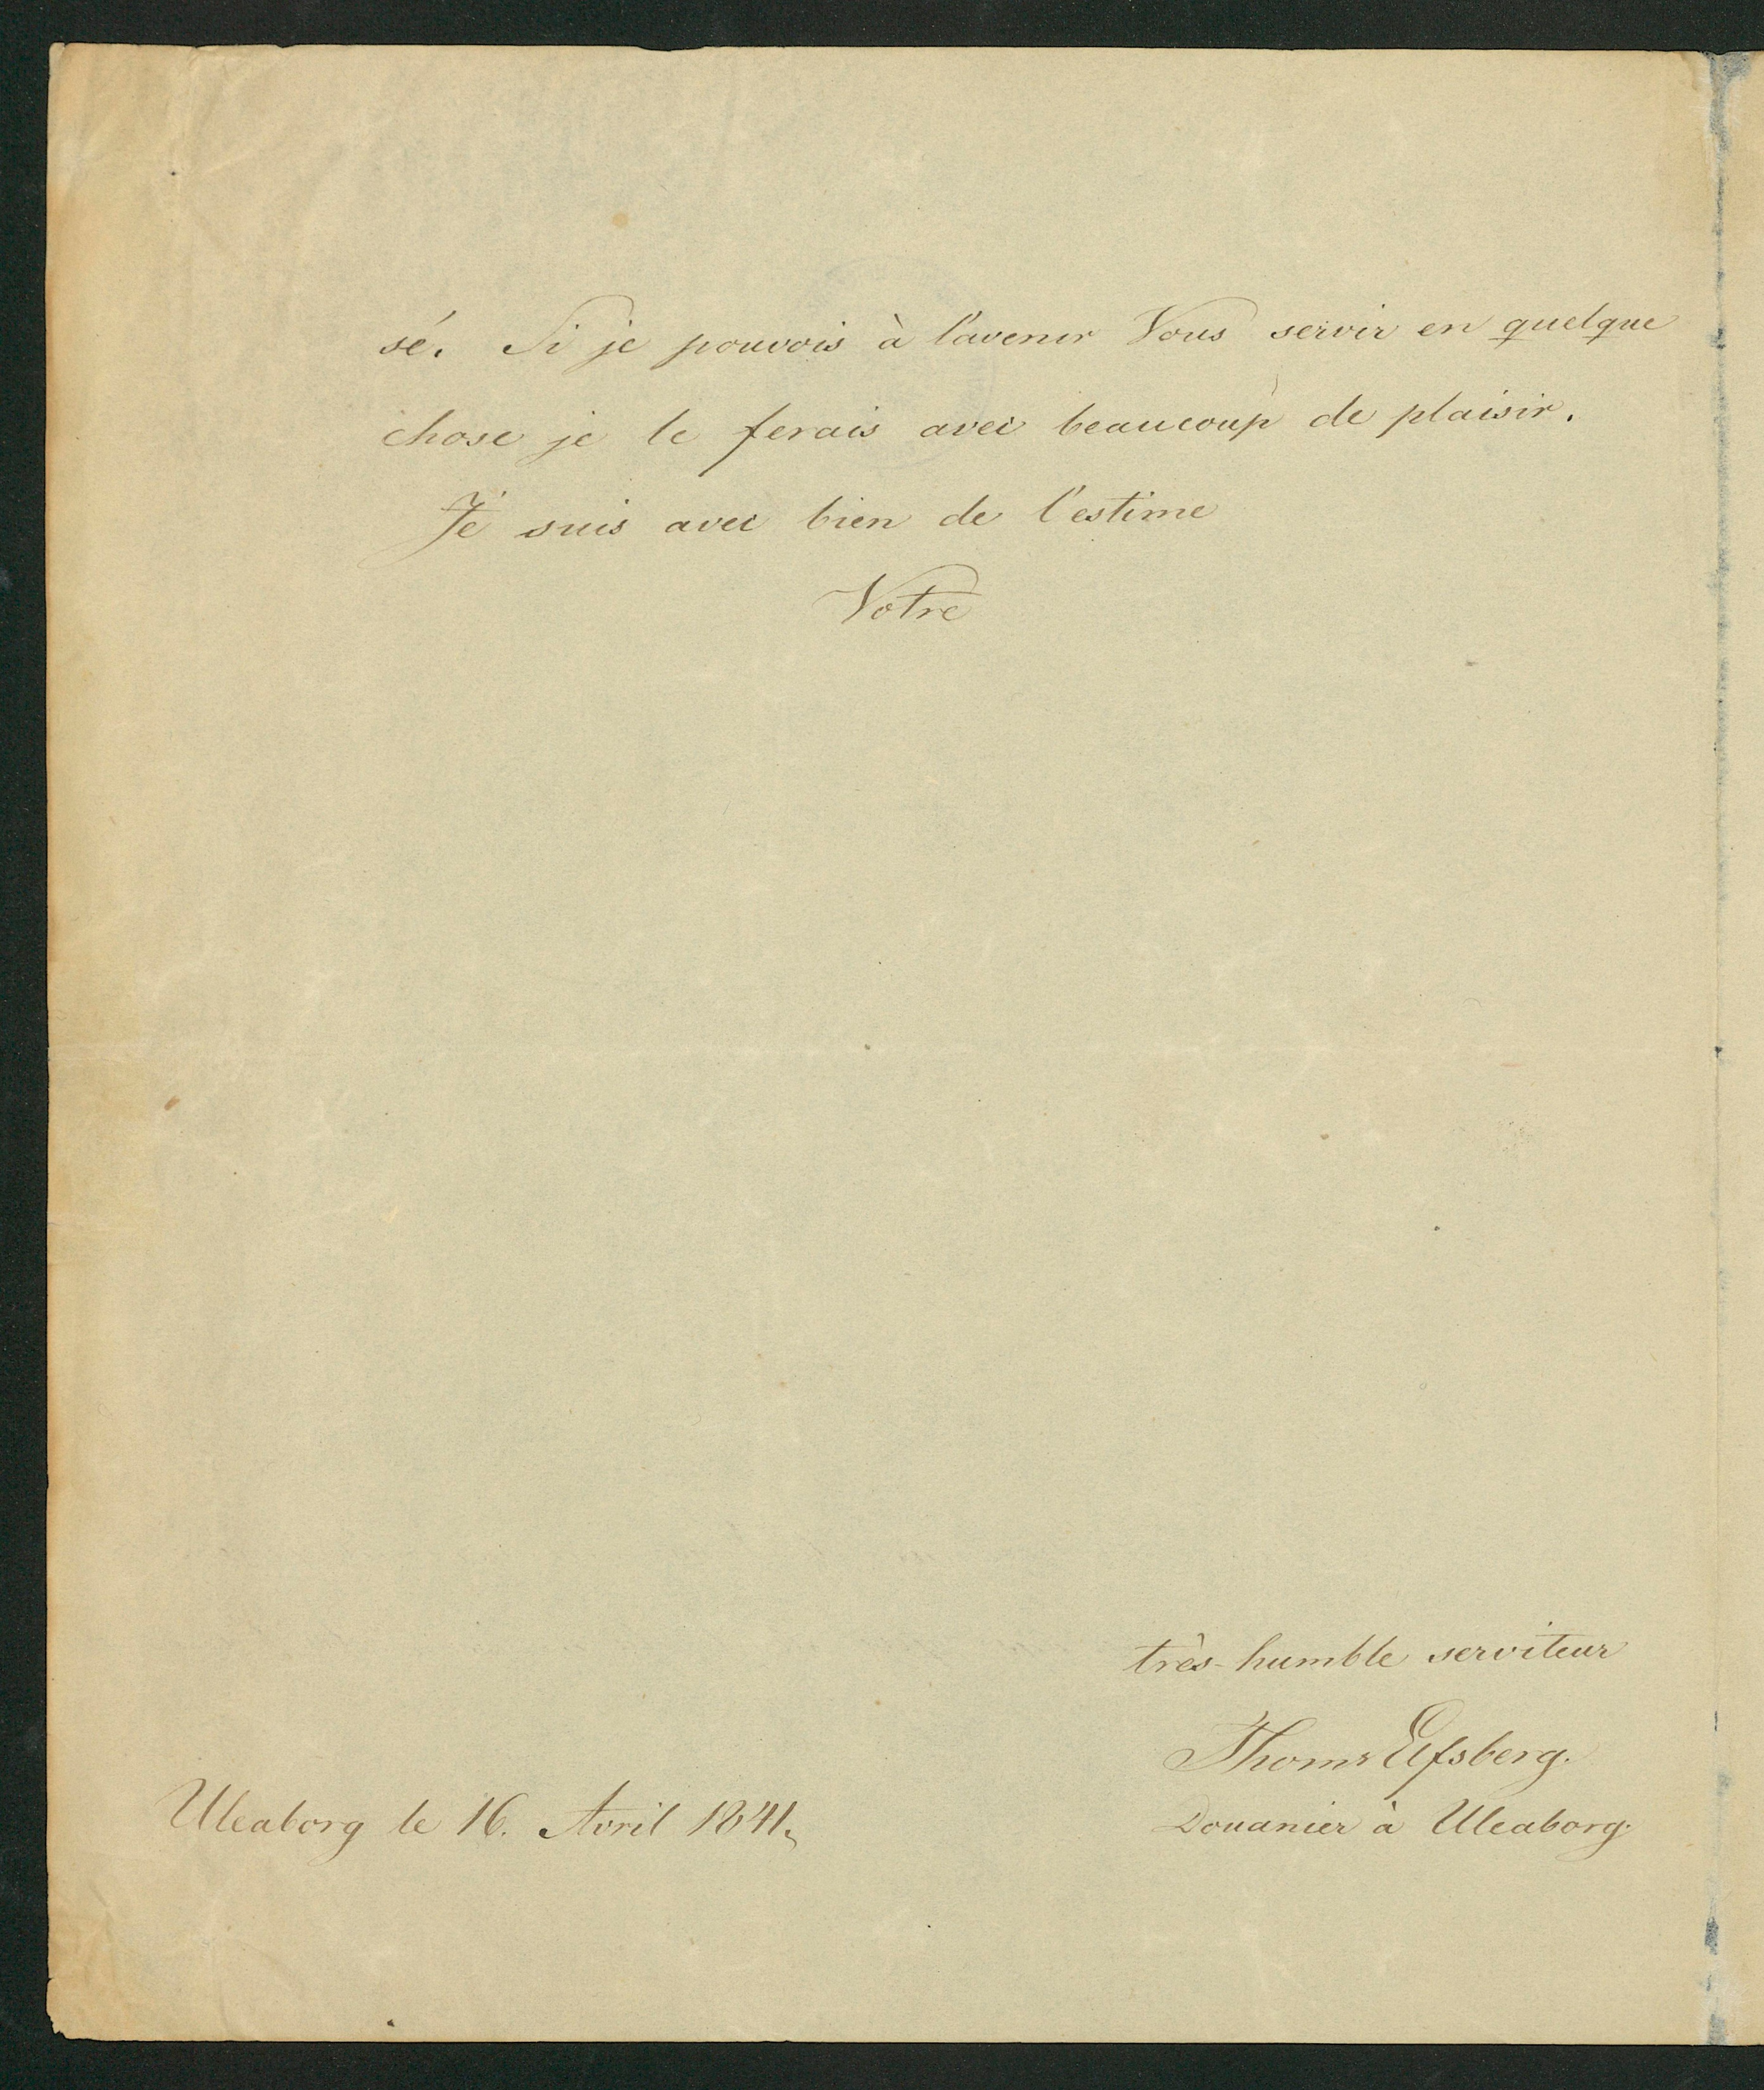 sé. Si je pouvois à l'avenir Vous servir en quelque
chose je le ferais avec beaucoup de plaisir.
Je suis avec bien de l'estime
Votre
très-humble serviteur
Thoms Elfsberg.
Douanier à Uleaborg.
Uleaborg le 16. Avril 1841.